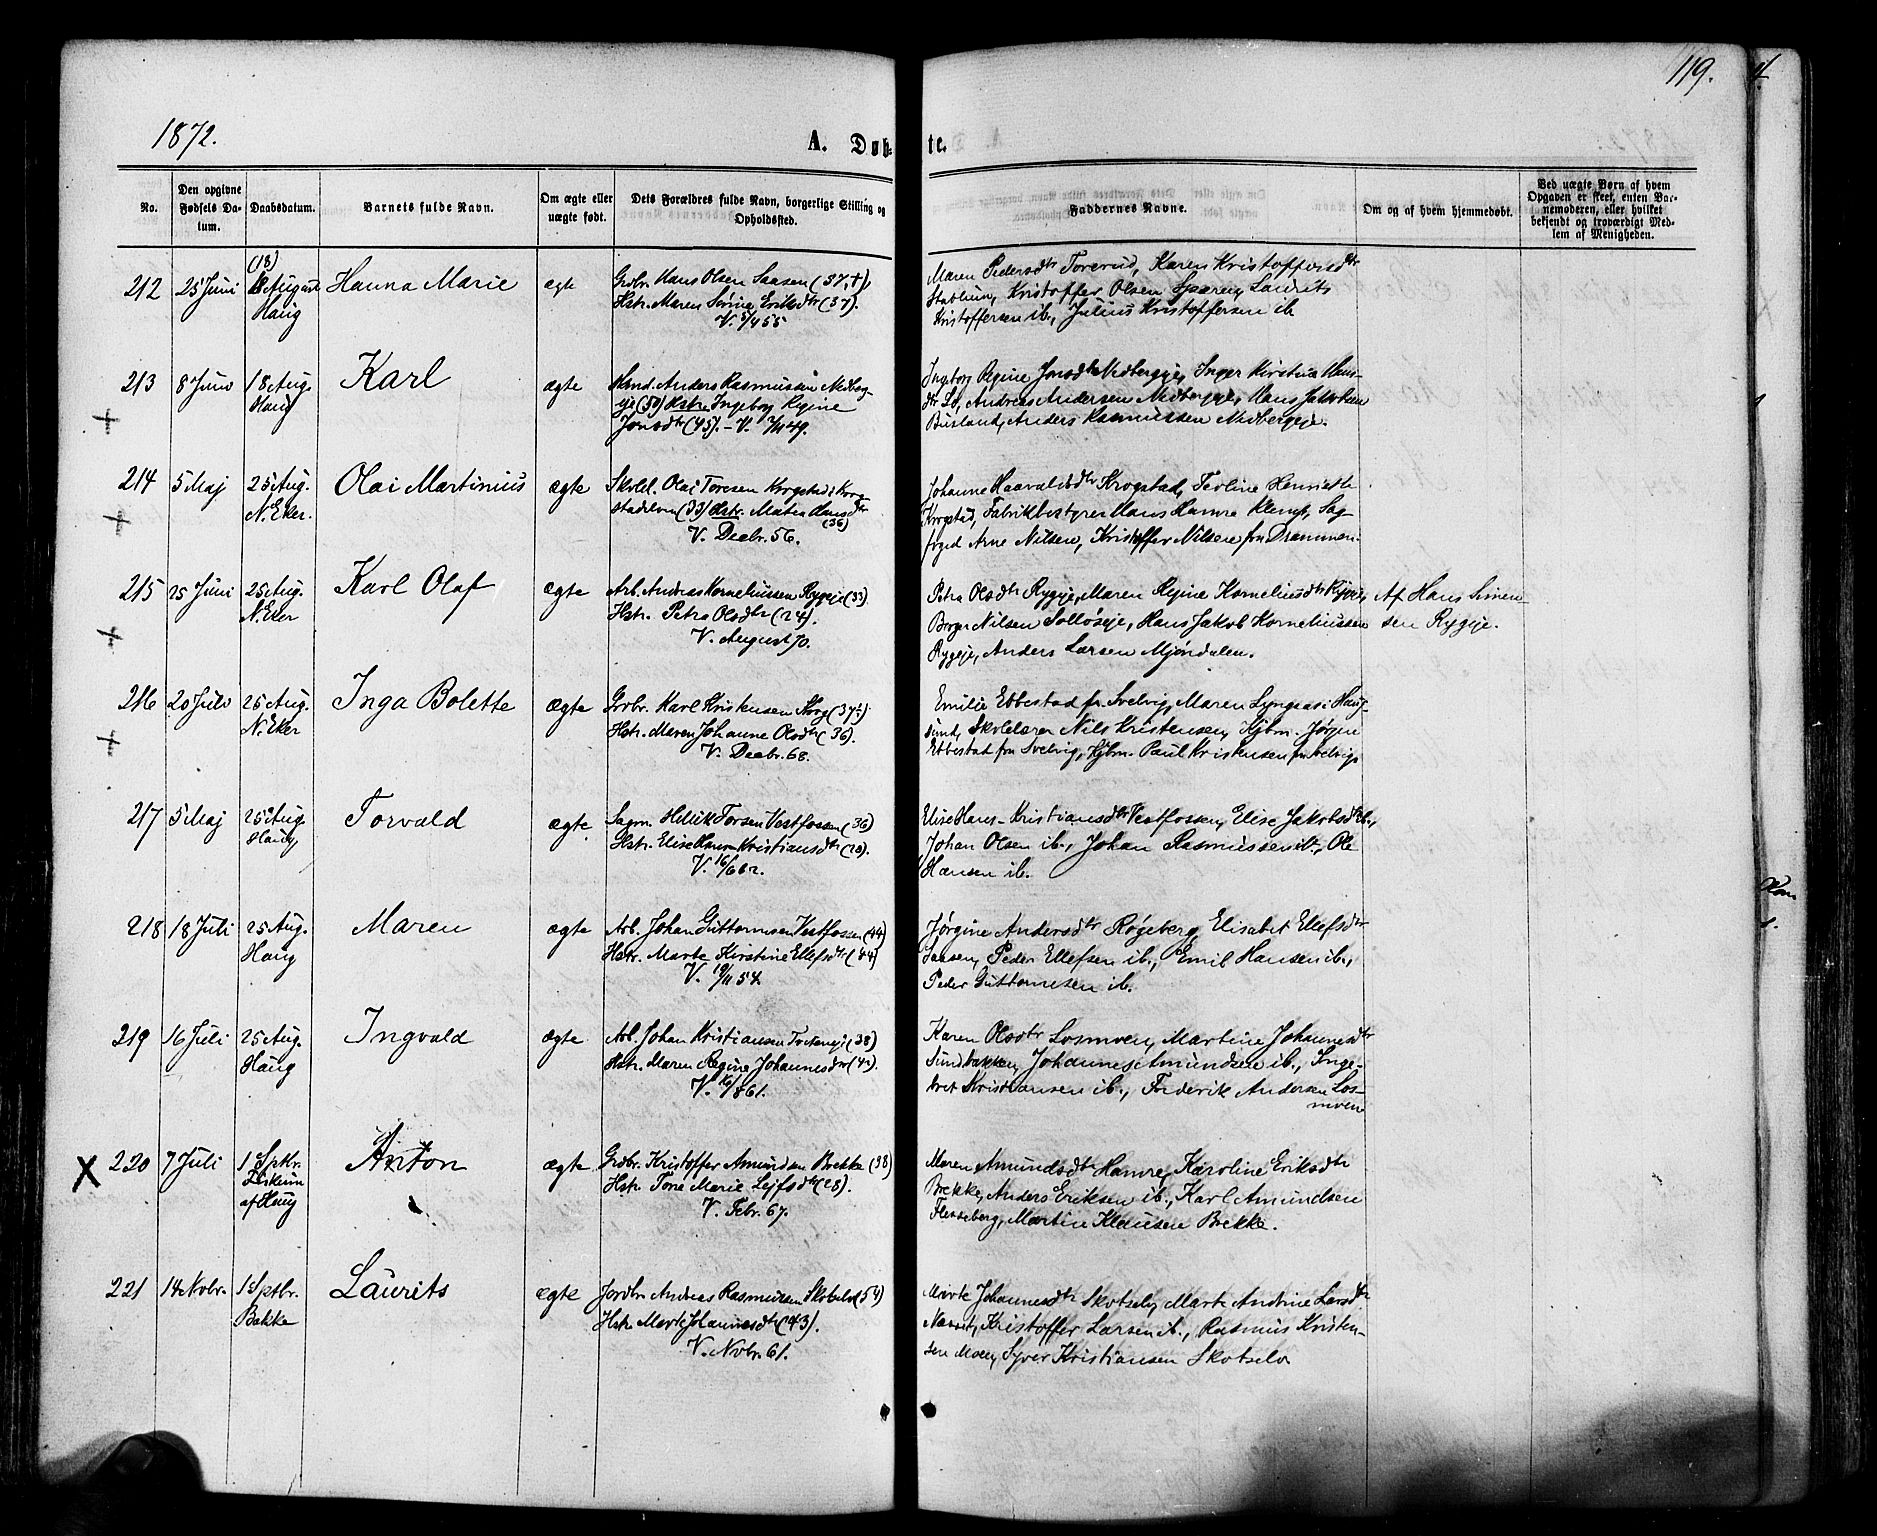 119.
1872.
A. Døb-te.
No.
Den opgivne Fødsels Da-tum.
Daabsdatum.
Barnets fulde Navn.
Om ægte eller uægte født.
Dets Forældres fulde Navn, borgerlige Stilling og Opholdssted.
Faddernes Navne.
Om og af hvem hjemmedøbt.
Ved uægte Børn af hvem Opgaven er skeet, enten Bar-nemoderen, eller hvilket bekjendt og troværdigt Med-lem af Menigheden.
212 25 Juni (18) August Haug Hanna Marie ægte
Grdbr. Hans Olsen Saasen (37,+)
Hstr. Maren Sørine Eriksdtr (37).
V. 5/4 55
Maren Pedersdtr Torerud, Karen Kristoffersdtr
Kristoffer Olsen Laurits
Kristoffersen ib., Julius Kristoffersen ib
213 8 Juni 18 Aug. Haug Karl ægte
Anders Rasmussen Medberg-
eje (50) Hstr. Ingeborg Regine
Jonsdtr (45). - V. 49.
Ingeborg Regine Jonsdtr Medbergeje, Inger Kirstine Han-
dtr Lo, Andreas Andersen Medbergeje, Hans Jakobsen
Busland, Anders Rasmussen Medbergeje.
214 5 Maj 25 Aug. N. Eker. Olai Martinius ægte
Olai Toresen Krogstad i Krog-
stadelven (33) Hstr. Matea Hansdtr
(36)
V. Decbr. 56.
Johanne Haavaldsdtr Krogstad, Teoline Henriette
Krogstad, Fabrikbestyrer Hans Hamre Klemp, Sag-
foged Arne Nilsen, Kristoffer Nilsen fra Drammen.
215 25 Juni 25 Aug. N. Eker Karl Olaf ægte
Arb. Andreas Korneliussen Rygeje (33)
Hstr. Petra Olsdtr (24).
V. August 70.
Petra Olsdtr Rygeje, Maren Regine Korneliusdtr Rygeje,
Nilsen Solløseje, Hans Jakob Korneliussen
Rygeje, Anders Larsen Mjøndalen.
Af Hans Simen-
sen Rygeje.
216 20 Juli 25 Aug. N. Eker Inga Bolette ægte
Grdbr. Karl Kristensen (37½)
Hstr. Maren Johanne Olsdtr (36).
V. Decbr. 68.
Emilie Ebbestad fr. Svelvig, Maren Lyngaas i Haug-
sund, Skolelærer Nils Kristensen, Kjbm. Jørgen
Ebbestad fra Svelvig, Kjbm. Paul Kristensen fra Svelvig.
217 5 Maj 25 Aug. Haug Torvald ægte
Sagm. Helik Torsen Vestfossen (36)
Hstr. Elise Hans-Kristiansdtr
V. 16/6 62.
Elise Hans-Kristiansdtr Vestfossen, Elise Jakobsdtr ib.,
Johan Olsen ib., Johan Rasmussen ib., Ole
Hansen ib.
218 18 Juli 25 Aug. Haug Maren ægte
Arb. Johan Guttormsen Vestfossen (44)
Hstr. Marte Kirstine Ellefsdtr (44)
V. 19/11 54.
Jørgine Andersdtr Røgeberg, Elisabet Ellefsdtr
Saasen, Peder Ellefsen ib., Emil Hansen ib.,
Peder Guttormsen ib.
219 16 Juli 25 Aug. Haug Ingvald ægte
Arb. Johan Kristiansen (38)
Hstr. Maren Regine Johannesdtr
V. 61.
Karen Olsdtr Losmoen, Martine Johannesdtr
Sundbakken, Johannes Amundsen ib., Inge-
bret Kristiansen ib., Frederik Andersen Los-
moen
220 7 Juli 1 Sptbr. Fiskum af Haug Anton ægte
Grdbr. Kristoffer Amundsen Brekke (38)
Hstr. Tone Marie Lejfsdtr (28).
V. Febr. 67.
Maren Amundsdtr Hamre, Karoline Eriksdtr
Brekke, Anders Eriksen ib., Karl Amundsen
Flesseberg, Martin Klausen Brekke.
221 14 Novbr. 1 Sptbr. Bakke Laurits ægte
Jordbr. Andreas Rasmussen Skotselv (54)
Hstr. Marte Johannesdtr (43).
V. Novbr. 61.
Marte Johannesdtr Skotselv, Marte Andrine Larsdtr
Næset, Kristoffer Larsen ib., Rasmus Kristen-
sen Moen, Syver Kristiansen Skotselv